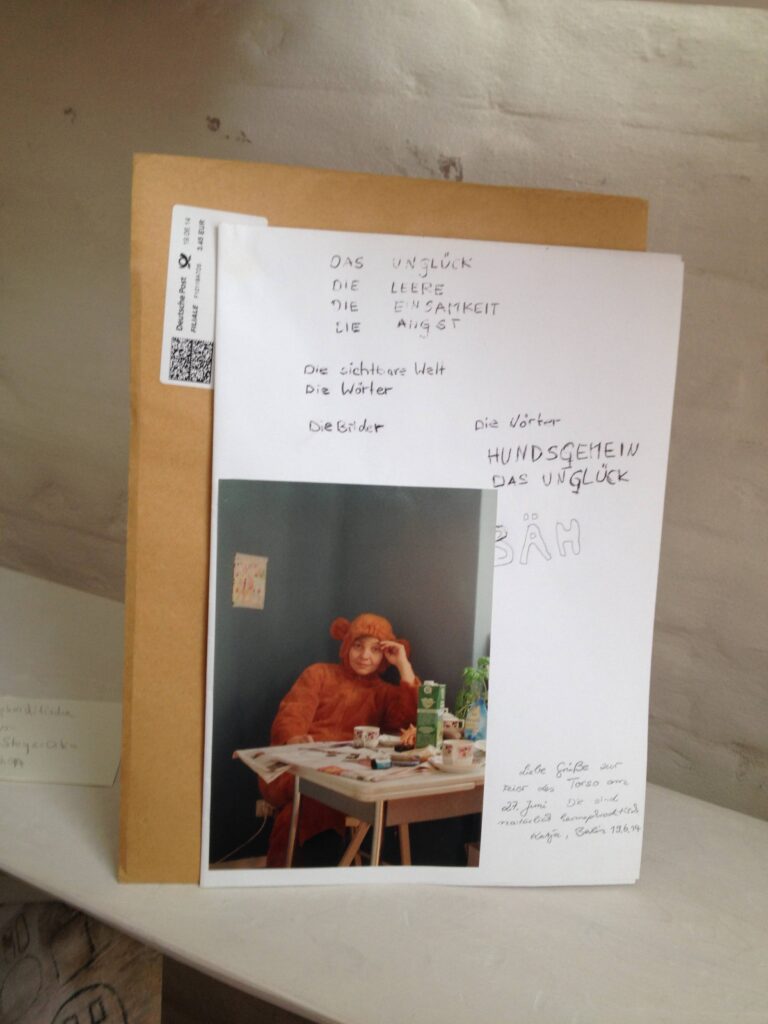 Deutsche Post 19.06.14
FILIALE 3.45 EUR
DAS UNGLÜCK
DIE LEERE
DIE EINSAMKEIT
DIE ANGST
Die sichtbare Welt
Die Wörter
Die Bilder Die Wörter
HUNDSGEMEIN
DAS UNGLÜCK
BÄH
Liebe Grüße zur
Feier des Torso am
27. Juni Die sind
natürlich
Katja, Berlin 19.6.14